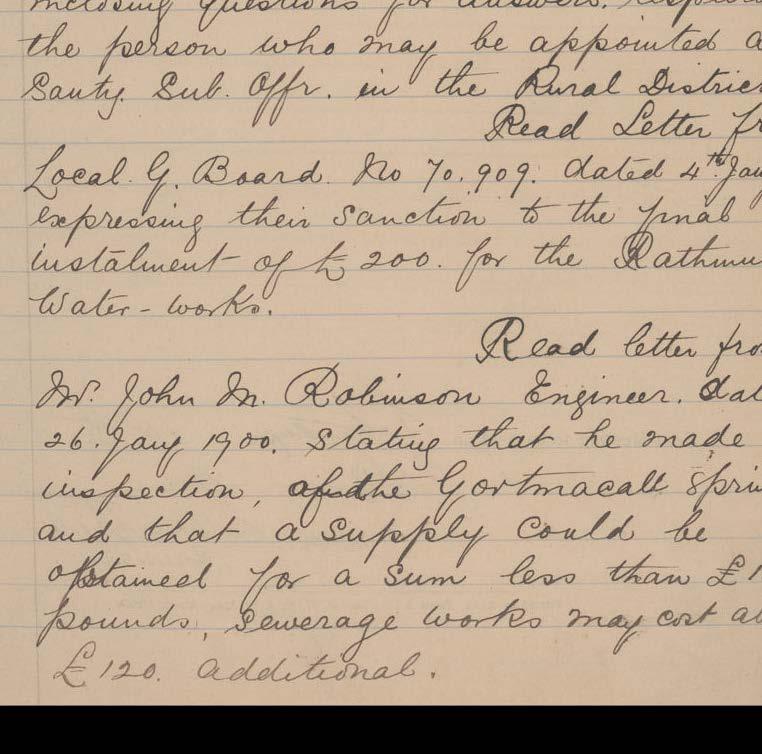 inclosing questions for answers.
the person who may be appointed a
Santy. Sub. Offr. in the Rural Distric
Read Letter fr
Local. G. Board. No 70.909. dated 4th Jan
expressing their sanction to the final
instalment of £ 200. for the Rathmu
Water-works.
Read letter fro
Mr. John M. Robinson Engineer. dat
26. Jany 1900. Stating that he made
inspection, of the Gortmacall Sprin
and that a supply could be
obtained for a sum less than £1
pounds, Sewerage works may cost ab
£120. additional.